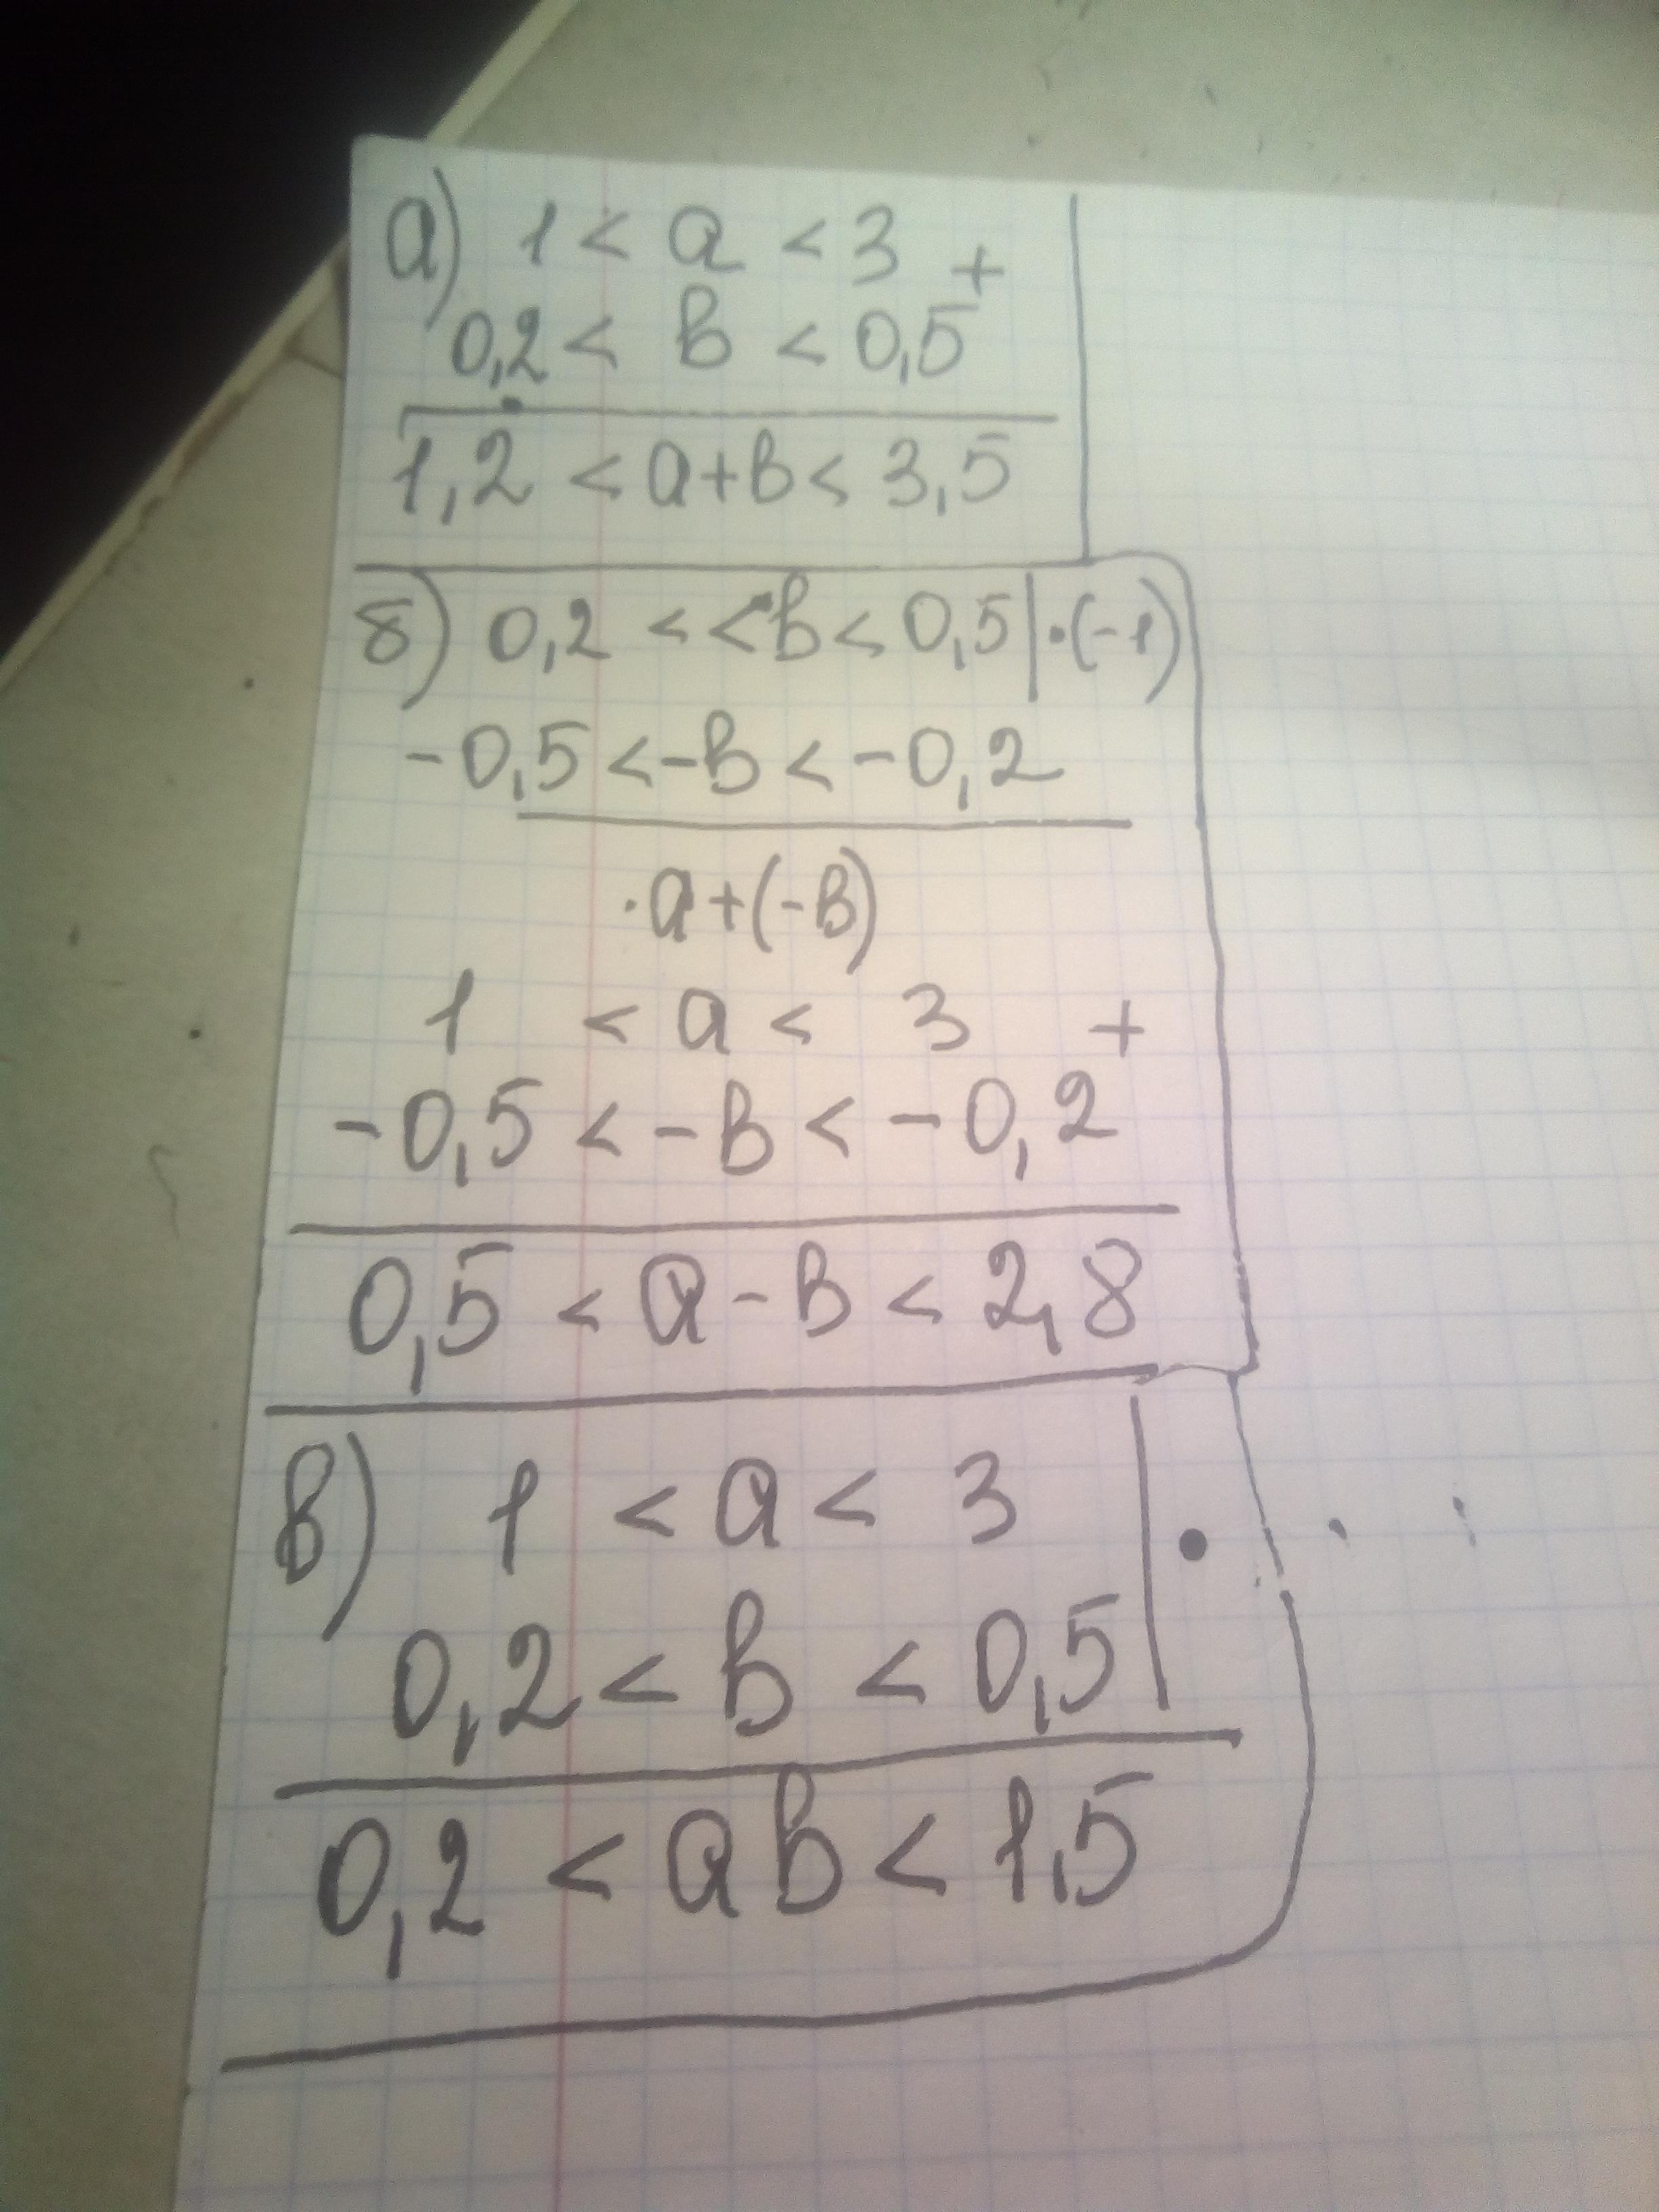 а) 1 < а < 3 +
0,2 < в < 0,5
1,2 < а+в < 3,5
б) 0,2 < < в < 0,5 | · (-1)
-0,5 < -в < -0,2
· а+(-в)
1 < а < 3 +
-0,5 < -в < -0,2
0,5 < а - в < 2,8
в) 1 < а < 3 | ·
0,2 < в < 0,5
0,2 < ав < 1,5